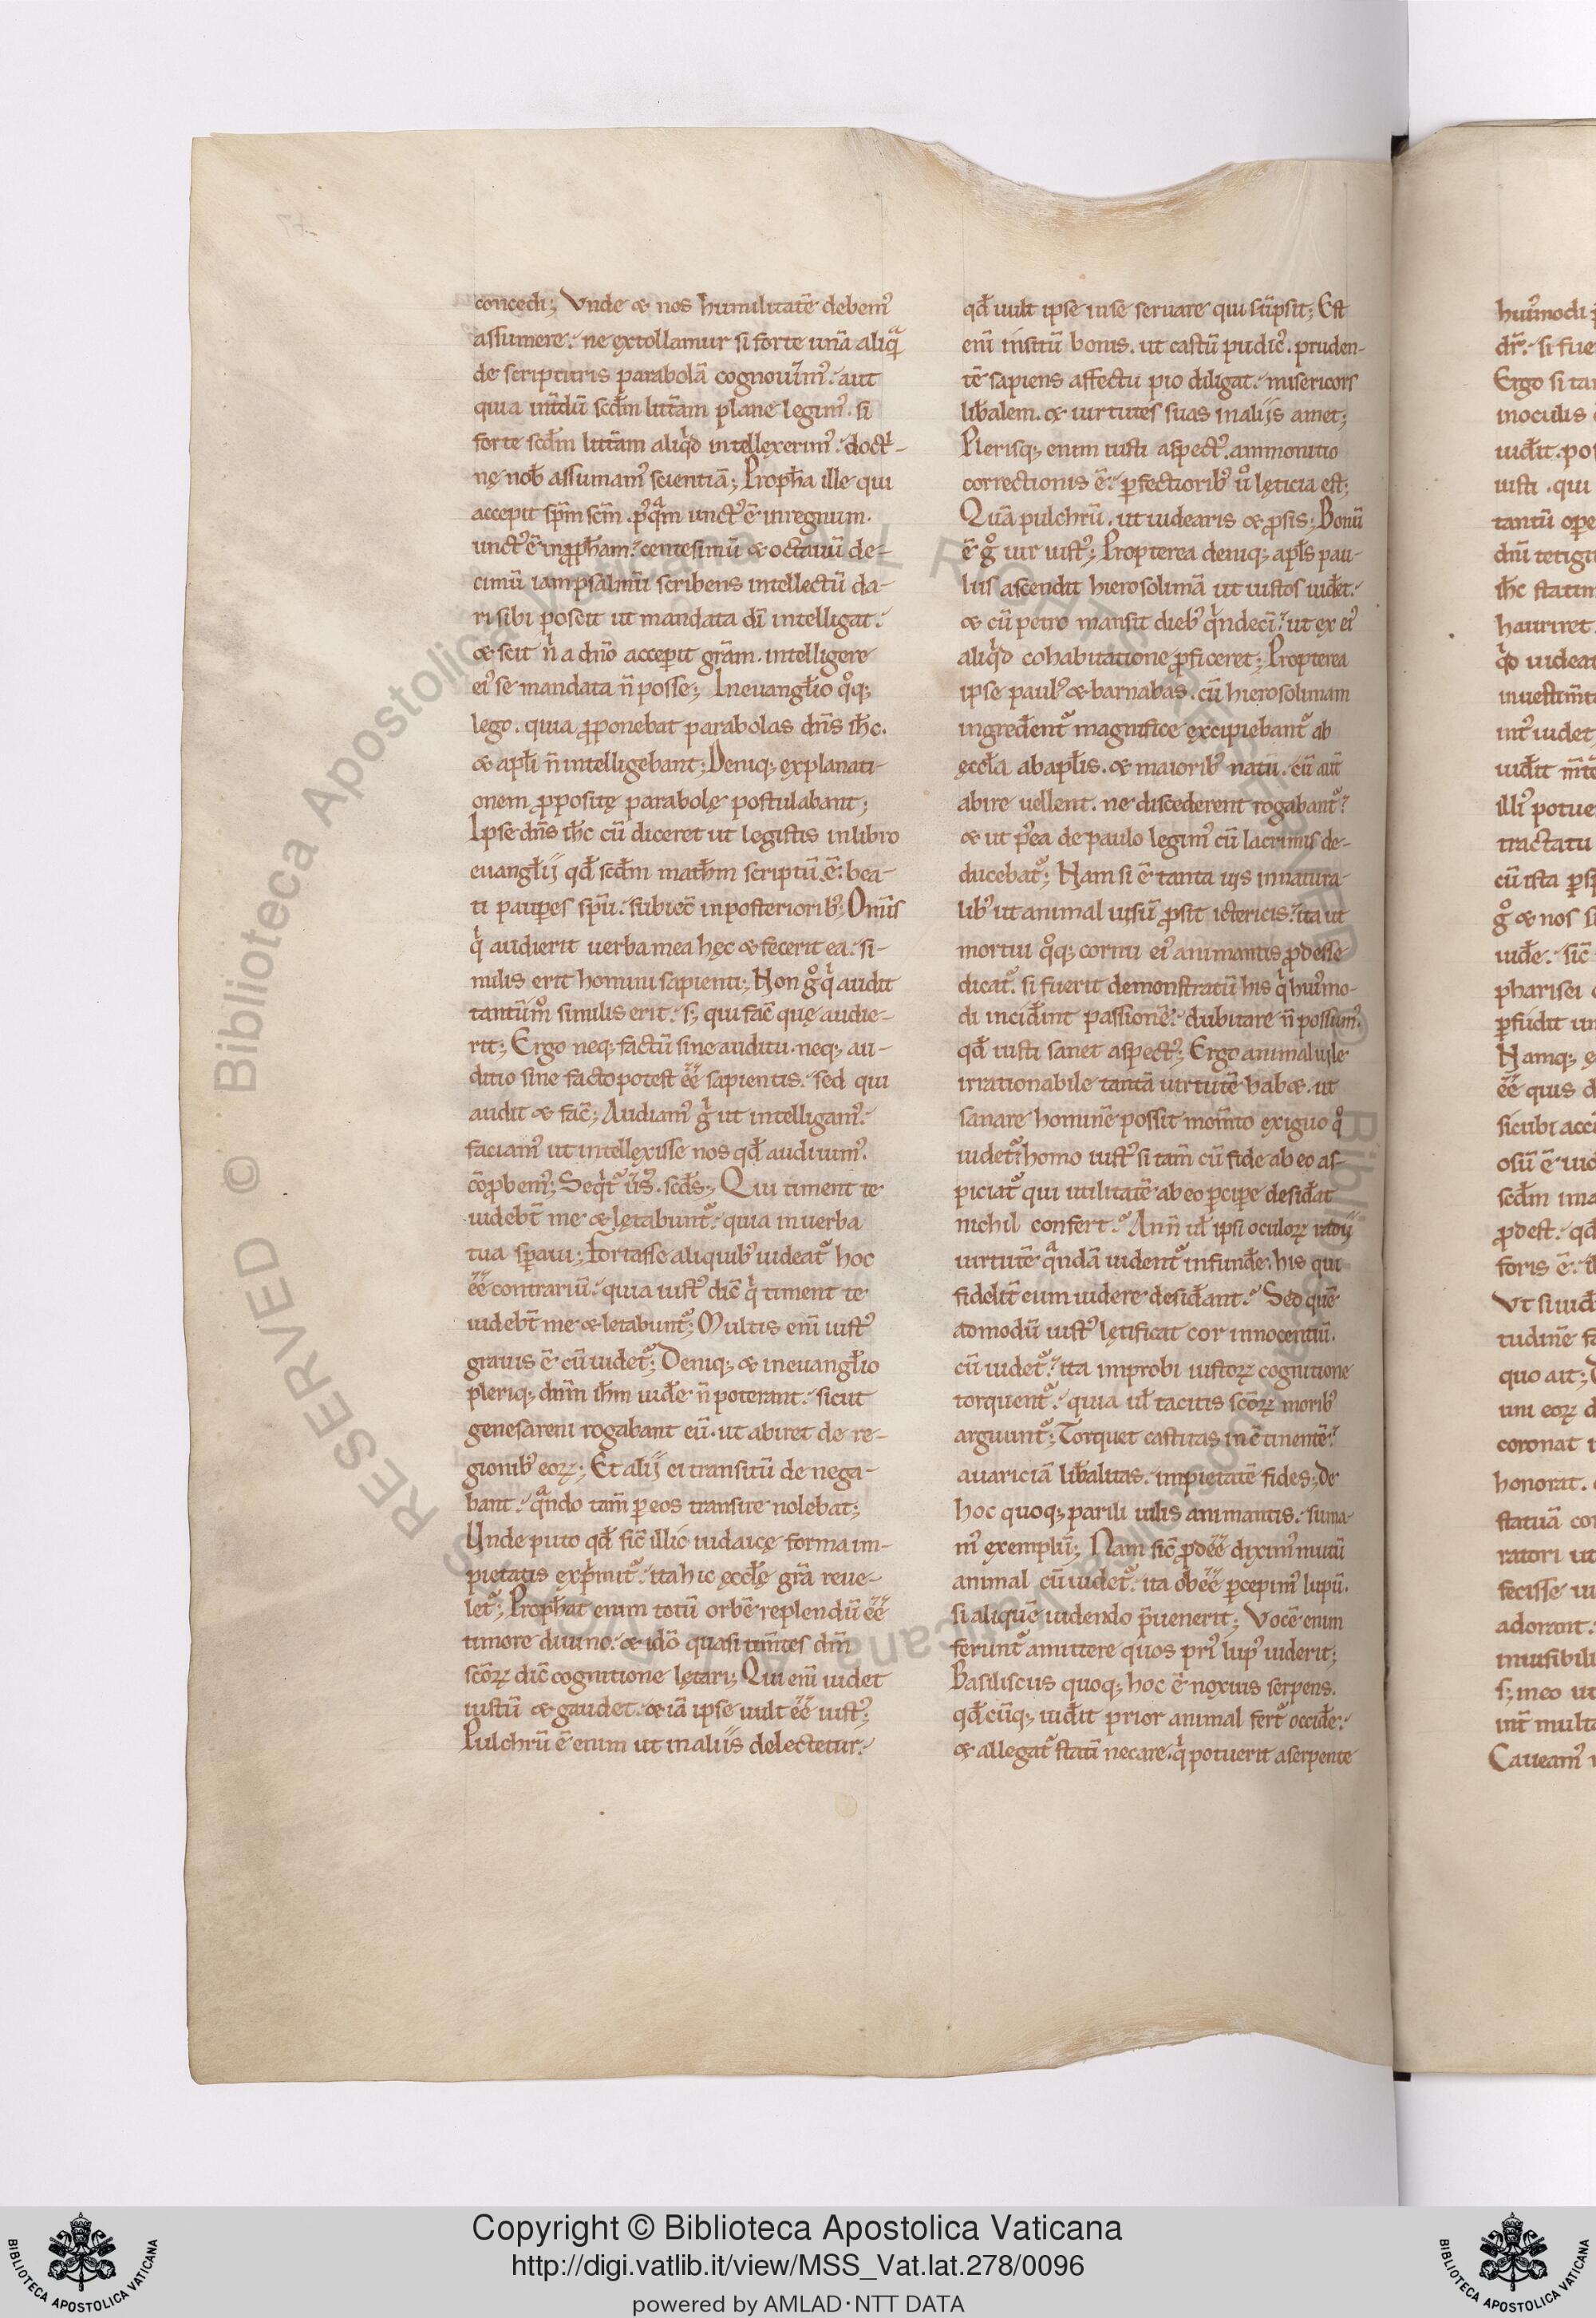 concedi; Vnde & nos humilitatē debem᾽
assumere. ne extollamur si forte unā aliqͣ
de scripturis parabolā cognouim᾽. aut
quia int̄dū scd̄m litt̄am plane legim᾽. si
forte scd̄m litt̄am aliqͥd intellexerim᾽. doctͥ-
nę nob̄ assumam᾽ scientiā; Proph̄a ille qui
accepit sp̄m sc̄m. p᾽qͣm unct᾽ ē inregnum.
unct᾽ ē inꝓph̄am. centesimū & octauū de-
cimū iam psalmū scribens intellectū da-
ri sibi poscit ut mandata dī intelligat.
& scit nͥ a dn̄o acceperit grām. intelligere
ei᾽ se mandata n̄ posse; Ineuangl̄io qͦq;
lego. quia ꝓponebat parabolas dn̄s ih̄c.
& apl̄i n̄ intelligebant; Deniq; explanati-
onem ꝓpositę parabolę postulabant;
Ipse dn̄s ih̄c cū diceret ut legistis inlibro
euangl̄ij qd̄ scd̄m math̄m scriptū ē. bea-
ti pauꝑes sp̄u. subiec̄ inposteriorib᾽; Om̄is
qͥ audierit uerba mea hęc & fecerit ea. si-
milis erit homini sapienti; Non gͦ qͥ audit
tantūmͦ similis erit. s; qui fac̄ quę audie-
rit; Ergo neq; factū sine auditu. neq; au-
ditio sine facto potest ēē sapientis. sed qui
audit & fac̄; Audiam᾽ gͥ ut intelligam᾽.
faciam᾽ ut intellexisse nos qd̄ audiuim᾽.
cōꝓbem᾽; Seqͥt᾽ u᾽s᾽. scd̄s; Qui timent te
uidebt̄ me & lętabunt᾽. quia inuerba
tua sꝑaui; Fortasse aliquib᾽ uideat᾽ hoc
ēē contrariū. quia iust᾽ dic̄ qͥ timent te
uidebt̄ me & letabunt᾽; Multis enī iust᾽
grauis ē cū uidet᾽; Deniq; & ineuangl̄io
pleriq; dn̄m ih̄m uid̄e n̄ poterant. sicut
genesareni rogabant eū. ut abiret de re-
gionib᾽ eoꝝ; Et alij ei transitū de nega-
bant. qͣndo tam̄ ꝑ eos transire nolebat;
Unde puto qd̄ sic̄ illic iudaicę forma im-
pietatis exp̄mit᾽. ita hic ęccl̄ę grā reue-
let᾽; Proph̄at enim totū orbē replendū ēē
timore diuino. & idō quasi tim̄tes dn̄m
scōꝝ dic̄ cognitione lętari; Qui enī uidet
iustū & gaudet. & iā ipse uult ēē iust᾽;
Pulchrū ē enim ut inaliis delectetur.
qd̄ uult ipse inse seruare qui sūpsit; Est
enī insitū bonis. ut castū pudic᾽. pruden-
tē sapiens affectu pio diligat. misericors
lib̄alem. & uirtutes suas inalijs amet;
Plerisq; enim iusti aspect᾽. ammonitio
correctionis ē. ꝑfectiorib᾽ uͦ lęticia est;
Quā pulchrū. ut uidearis & ꝓsis; Bonū
ē gͦ uir iust᾽; Propterea deniq; apl̄s pau-
lus ascendit hierosolimā ut iustos uid̄et.
& cū petro mansit dieb᾽ qͥndecī. ut ex ei᾽
aliqͥd cohabitatione ꝓficeret; Propterea
ipse paul᾽ & barnabas. cū hierosolimam
ingred̄ent᾽ magnifice excipiebant᾽ ab
ęccl̄a ab apl̄is. & maiorib᾽ natu. cū aut̄
abire uellent. ne discederent rogabant᾽.
& ut p̄ea de paulo legim᾽ cū lacrimis de-
ducebat᾽; Nam si ē tanta uis innatura-
lib᾽ ut animal uisū ꝓsit ictericis. ita ut
mortui qͦq; cornu ei᾽ animantis ꝓdesse
dicat᾽. si fuerit demonstratū his qͥ hui᾽mo-
di incid̄int passionē. dubitare n̄ possum᾽.
qd̄ iusti sanet aspect᾽; Ergo animal uile
irrationabile tantā uirtutē hab&. ut
sanare hominē possit mom̄to exiguo qͦ
uidet᾽. homo iust᾽ si tam̄ cū fide ab eo as-
piciat᾽ qui utilitatē ab eo ꝑciꝑe desid̄at
nichil confert. Ann̄ ul̄ ipsi oculoꝝ radij
uirtutē qͣndā uident᾽ infund̄e. his qui
fidelit̄ eum uidere desid̄ant. Sed quē
admodū iust᾽ lętificat cor innocentiū.
cū uidet᾽. ita improbi iustoꝝ cognitione
torquent᾽. quia ul̄ tacitis scōꝝ morib᾽
arguunt᾽; Torquet castitas incōtinentē.
auariciā lib̄alitas. impietatē fides; De
hoc quoq; parili uilis animantis. suma-
m᾽ exemplū; Nam sic̄ ꝓdēē dixim᾽ mutū
animal cū uidet᾽. ita obēē ꝑcepim᾽ lupū.
si aliquē uidendo p̄uenerit; Vocē enim
ferunt᾽ amittere quos pri᾽ lup᾽ uiderit;
Basiliscus quoq; hoc ē noxius serpens.
qd̄cūq; uid̄it prior animal fert᾽ occid̄e.
& allegat᾽ statī necare. qͥ potuerit aserpente
Copyright © Biblioteca Apostolica Vaticana
http://digi.vatlib.it/view/MSS_Vat.lat.278/0096
powered by AMLAD·NTT DATA